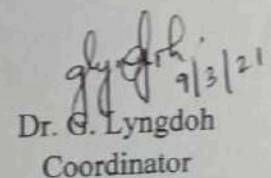 9/3/21
Dr. G. Lyngdoh
Coordinator